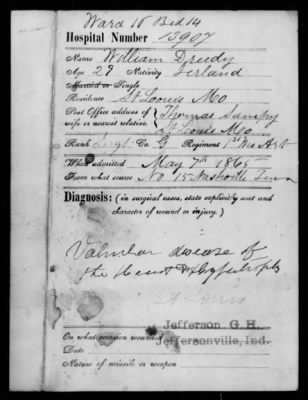 Ward 15 Bed 14
Hospital Number 13907
Name William Drudy
Age 29 Nativity Ierland
Married or Single
Residence St Louis Mo
Post Office address of wife or nearest relative. Thomas
St Louis Mo
Rank Sergt Co. G Regiment 1st Mo Art
When admitted May 7th 1865
From what source No 15 Nashville Tenn
Diagnosis: (in surgical cases, state explicitly seat and
character of wound or injury.)
Valvular disease of
the Heart &
Jefferson G. H.
On what occasion wounded Jeffersonville, Ind.
Date
Nature of missile or weapon